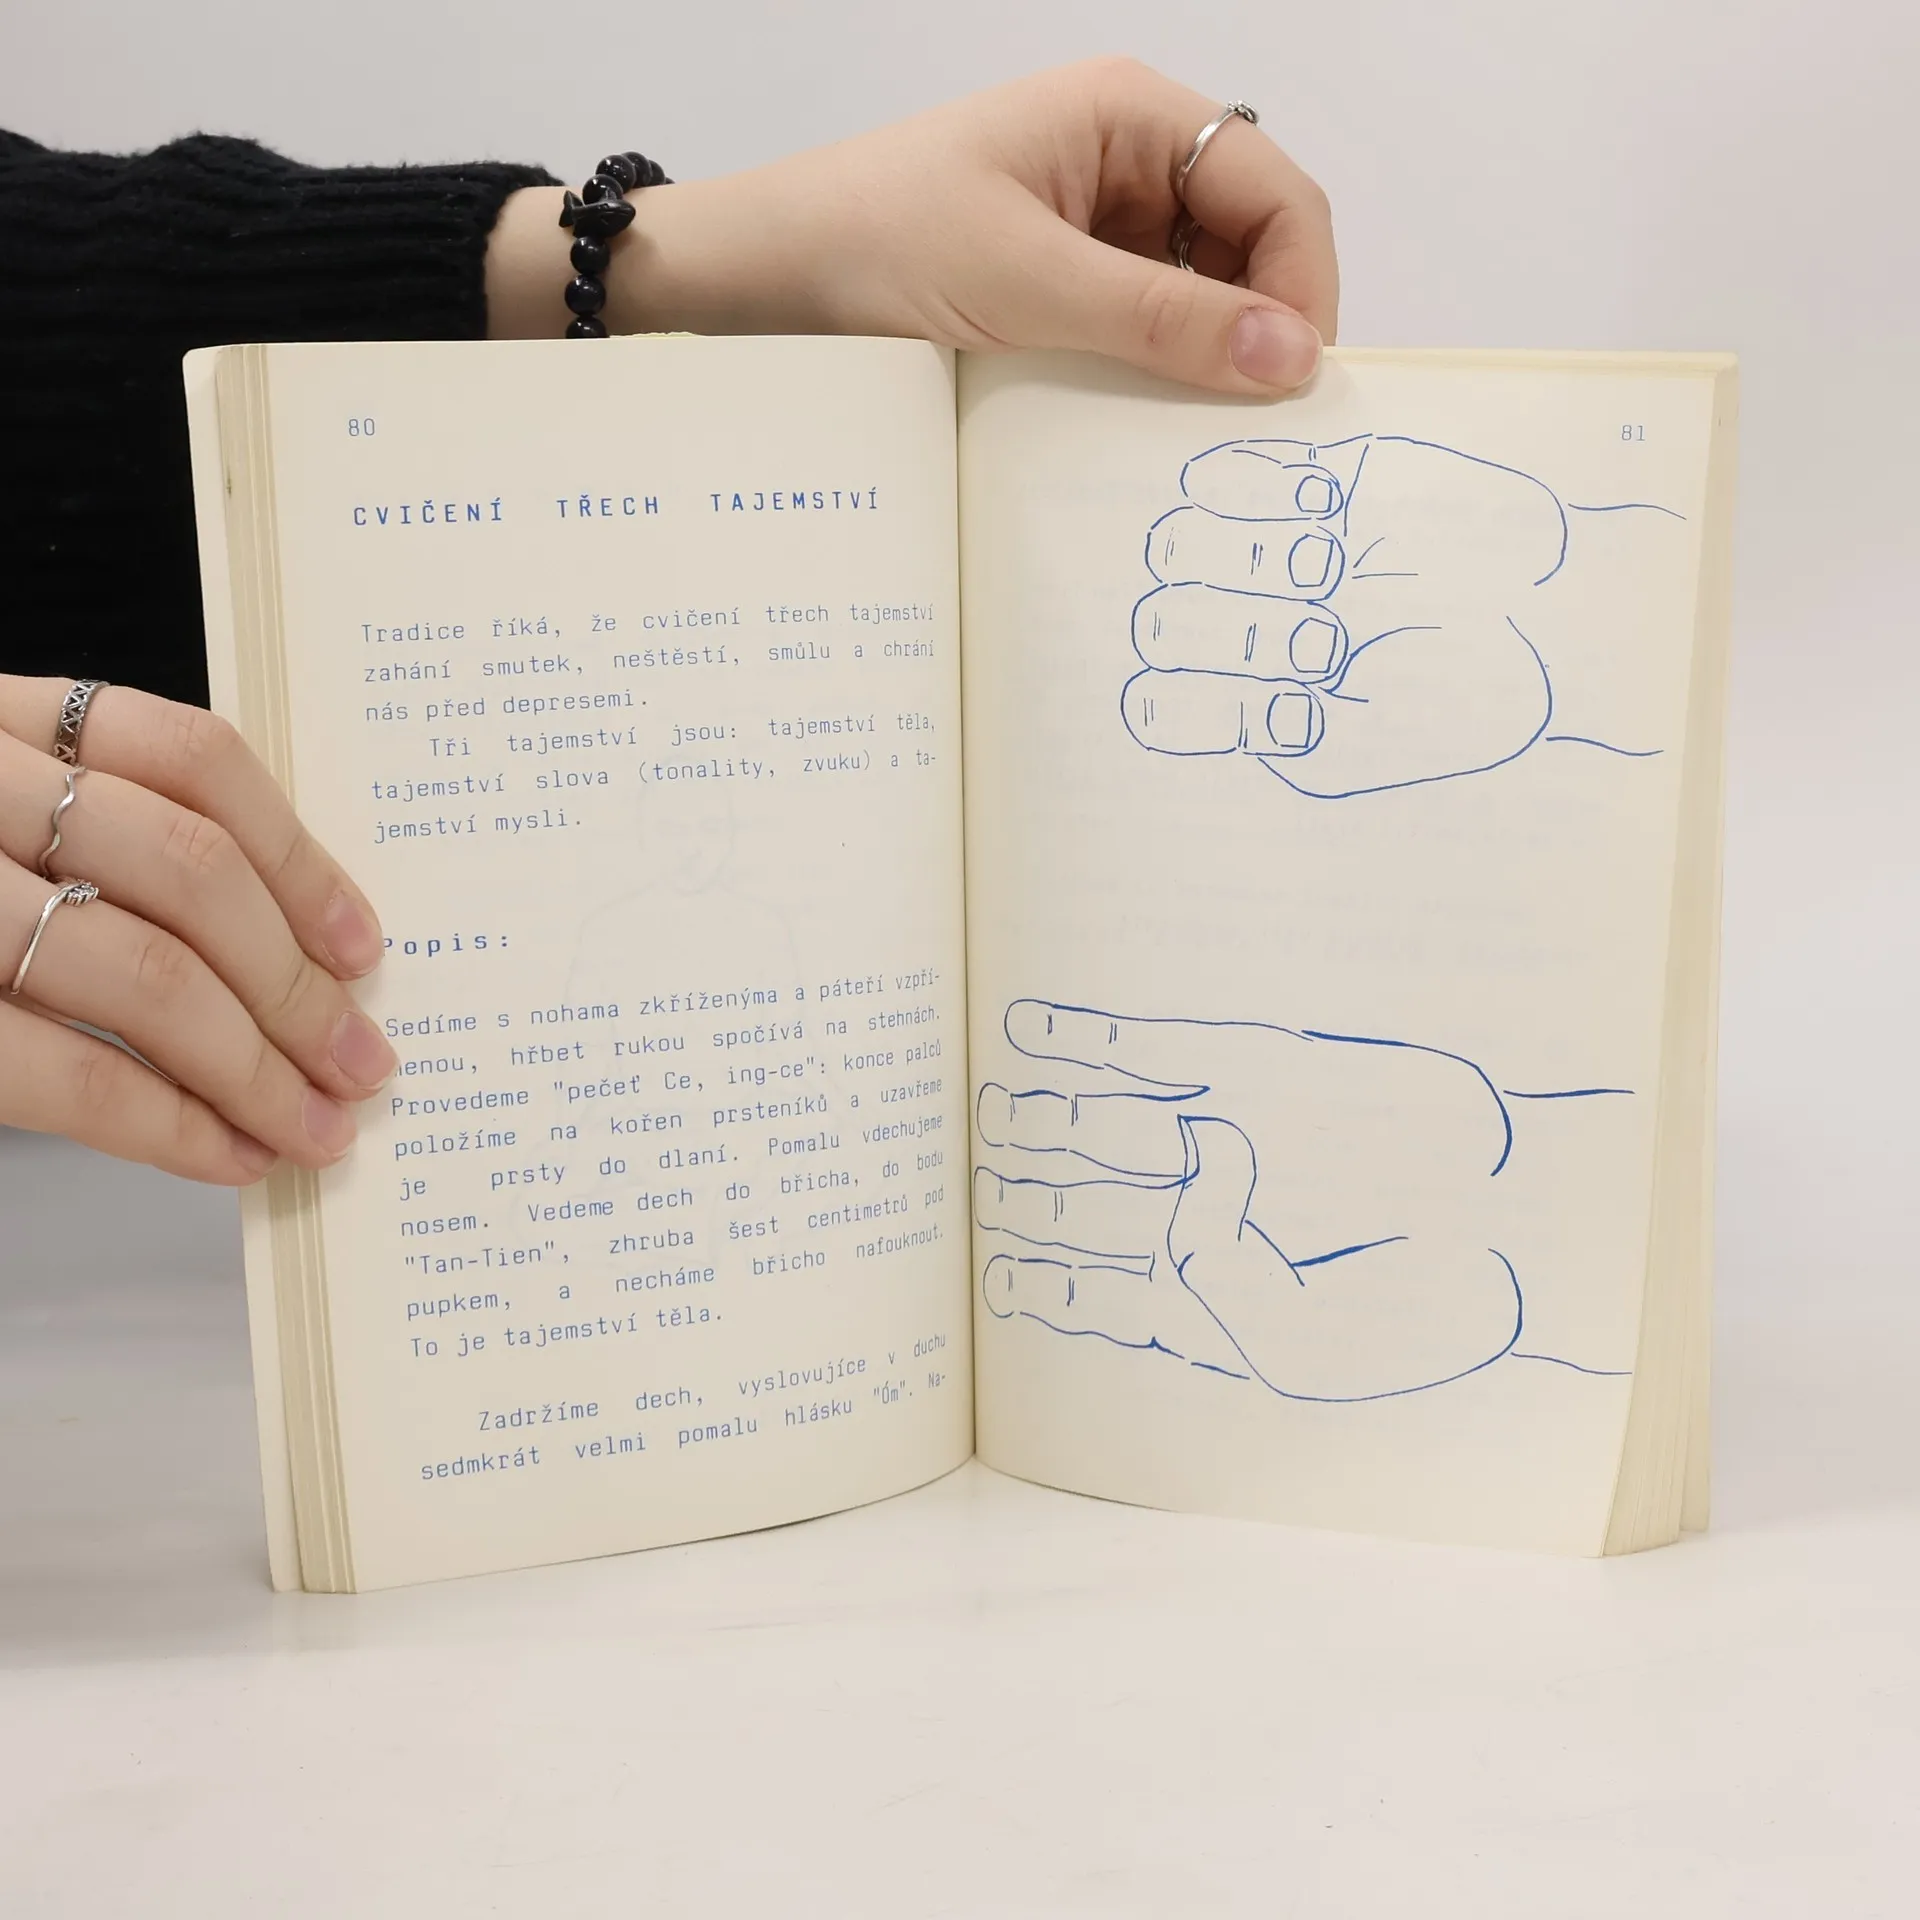 80
CVIČENÍ TŘECH TAJEMSTVÍ
Tradice říká, že cvičení třech tajemství
zahání smutek, neštěstí, smůlu a chrání
nás před depresemi.
Tři tajemství jsou: tajemství těla,
tajemství slova (tonality, zvuku) a ta-
jemství mysli.
Popis:
Sedíme s nohama zkříženýma a páteří vzpří-
menou, hřbet rukou spočívá na stehnách.
Provedeme "pečeť Ce, ing-ce": konce palců
položíme na kořen prsteníků a uzavřeme
je prsty do dlaní. Pomalu vdechujeme
nosem. Vedeme dech do břicha, do bodu
"Tan-Tien", zhruba šest centimetrů pod
pupkem, a necháme břicho nafouknout.
To je tajemství těla.
Zadržíme dech, vyslovujíce v duchu
sedmkrát velmi pomalu hlásku "Óm". Na-
81